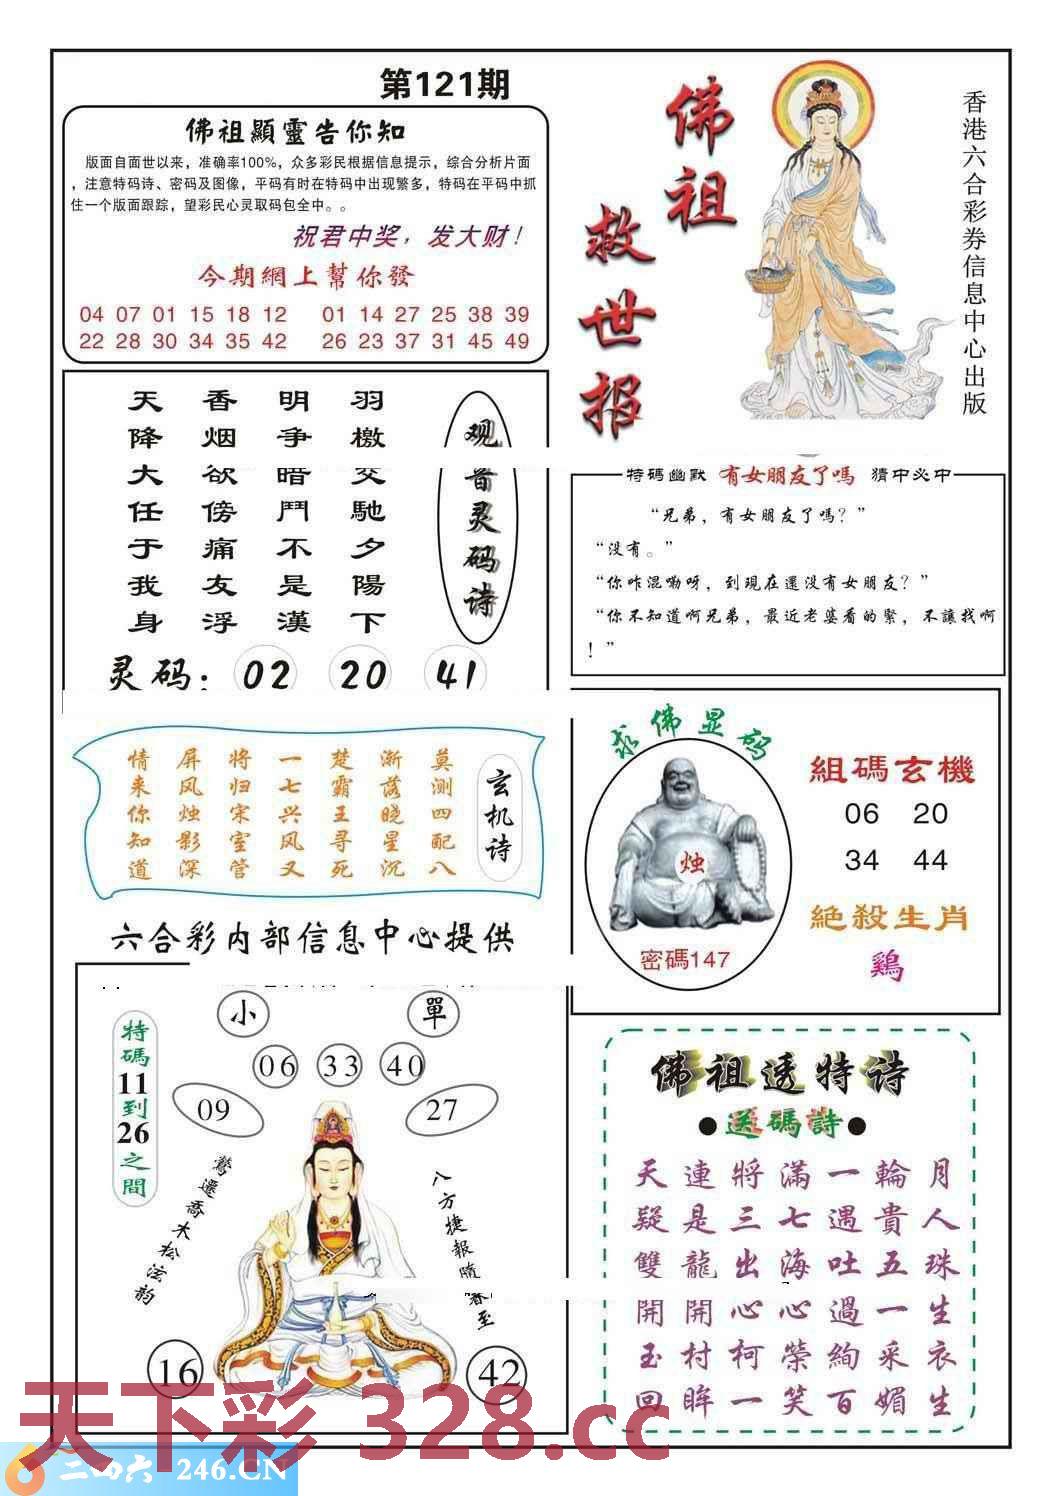 第121期
佛祖顯靈告你知
版面自面世以来，准确率100%，众多彩民根据信息提示，综合分析片面
，注意特码诗、密码及图像，平码有时在特码中出现繁多，特码在平码中抓
住一个版面跟踪，望彩民心灵取码包全中。。
祝君中奖，发大财！
今期網上幫你發
04 07 01 15 18 12 01 14 27 25 38 39
22 28 30 34 35 42 26 23 37 31 45 49
佛祖
救世报
香港六合彩券信息中心出版
观音灵码诗
羽檄交馳夕陽下
明争暗鬥不是漢
香烟欲傍痛友浮
天降大任于我身
灵码：02 20 41
特碼幽默 有女朋友了嗎 猜中必中
“兄弟，有女朋友了嗎？”
“没有。”
“你咋混嘞呀，到現在還没有女朋友？”
“你不知道啊兄弟，最近老婆看的緊，不讓找啊
！”
玄机诗
莫测四配八
渐落晓星沉
楚霸王寻死
一七兴风又
将归宋室管
屏风烛影深
情来你知道
求佛显码
烛
密碼147
組碼玄機
06 20
34 44
絕殺生肖
鷄
六合彩内部信息中心提供
特碼11到26之間
小 單
06 33 40
09 27
鶯遷喬木松泫韵
八方捷報隨春至
16 42
佛祖透特诗
●送碼詩●
天連將滿一輪月
疑是三七遇貴人
雙龍出海吐五珠
開開心心過一生
玉村柯榮絢采衣
回眸一笑百媚生
天下彩 328.cc
二四六 246.CN